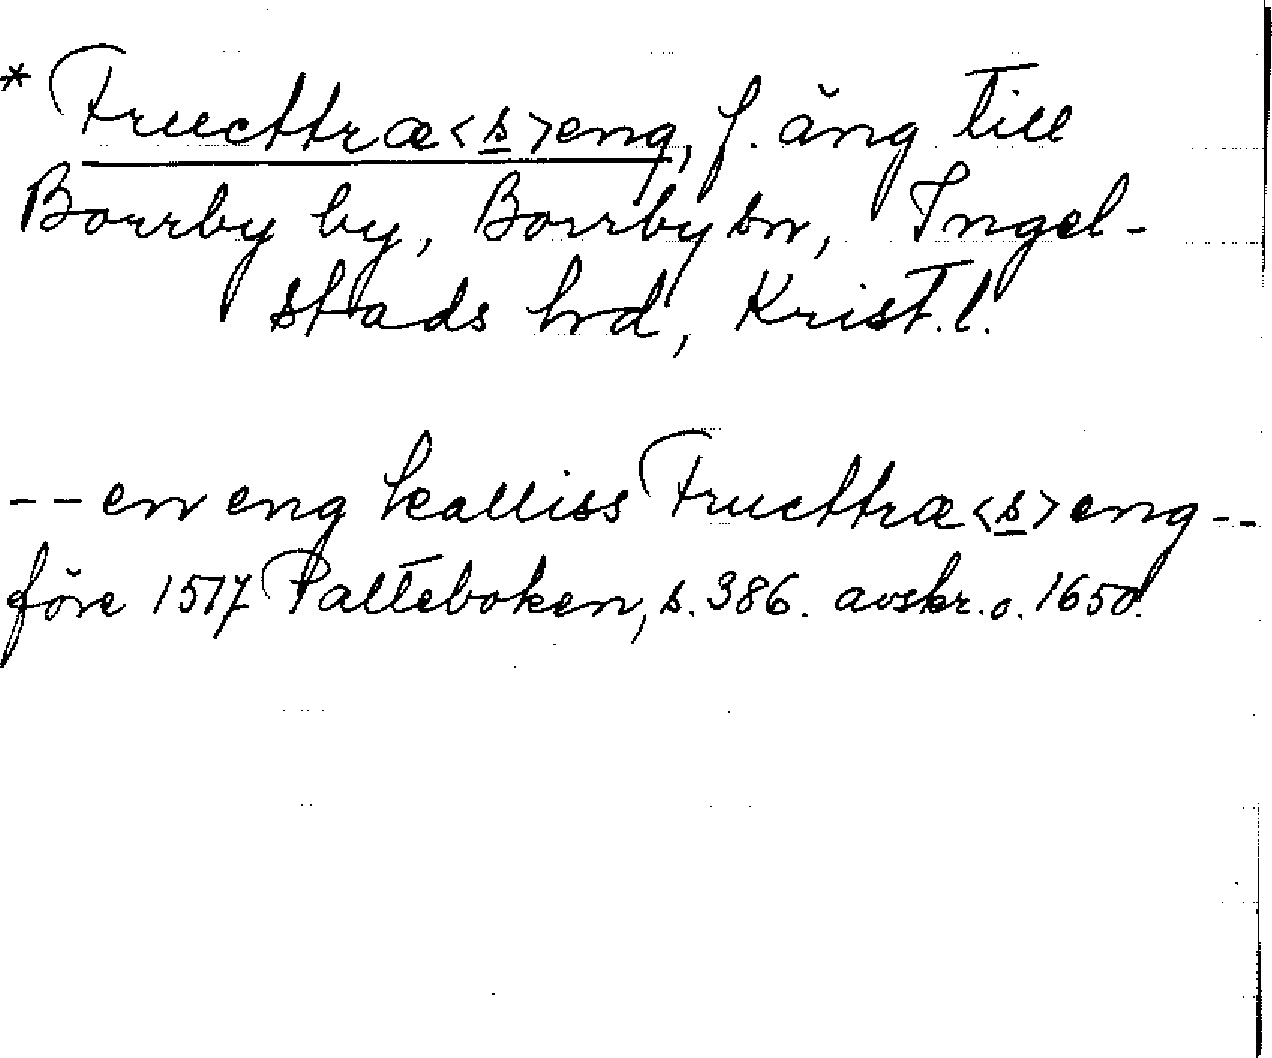 * Fructtræ<s>eng, f. äng till
Borrby by, Borrby sn, Ingel-
stads hrd, Krist. l.
-- en eng kalliss Fructtræ<s>eng --
före 1517 Palteboken, s. 386. avskr. o. 1650.